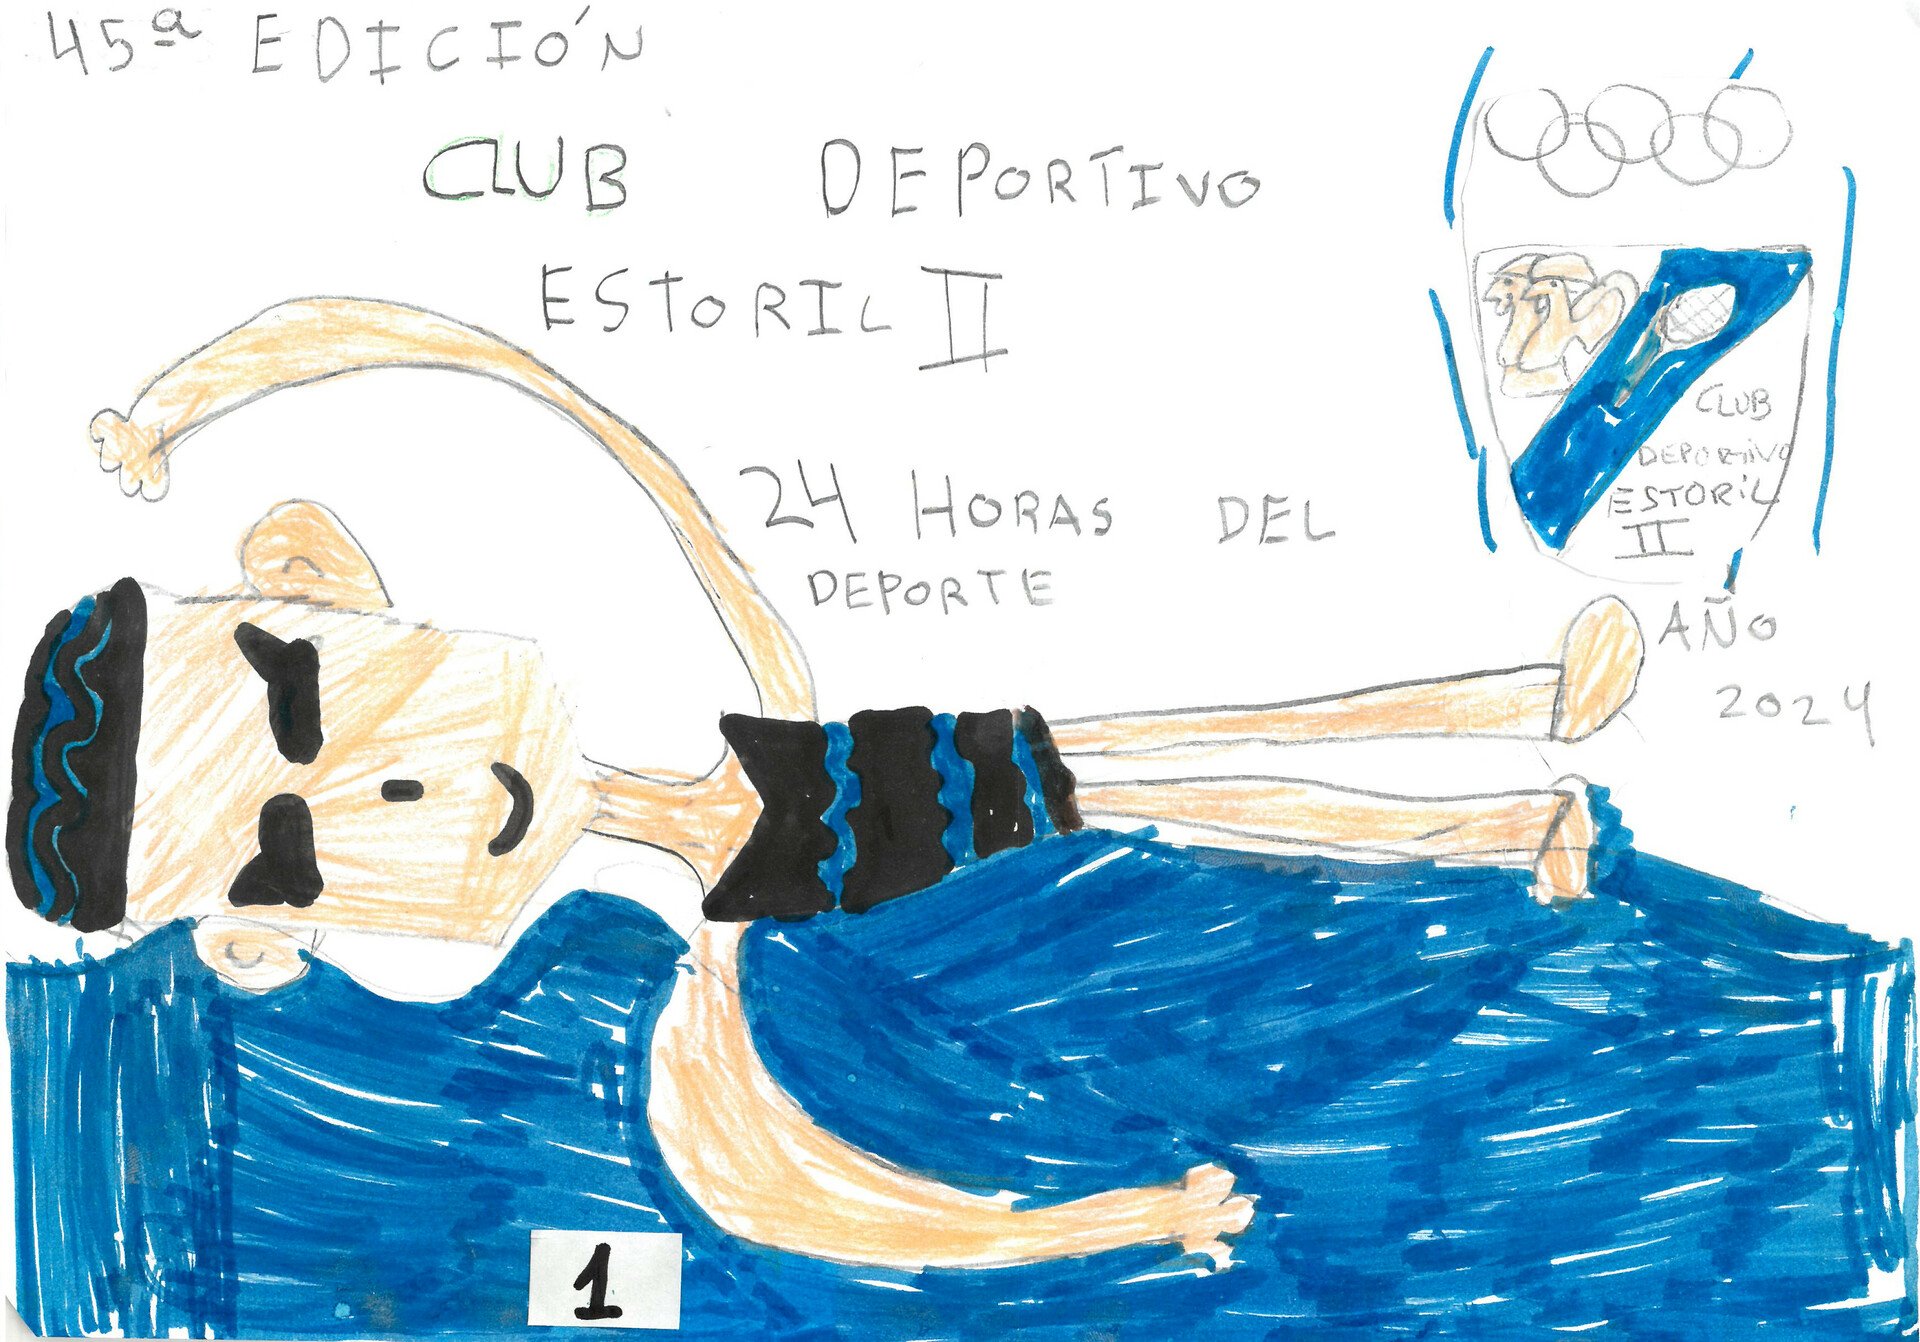 45ª EDICIÓN
CLUB DEPORTIVO
ESTORIL II
24 HORAS DEL
DEPORTE
AÑO
2024
CLUB
DEPORTIVO
ESTORIL
II
1